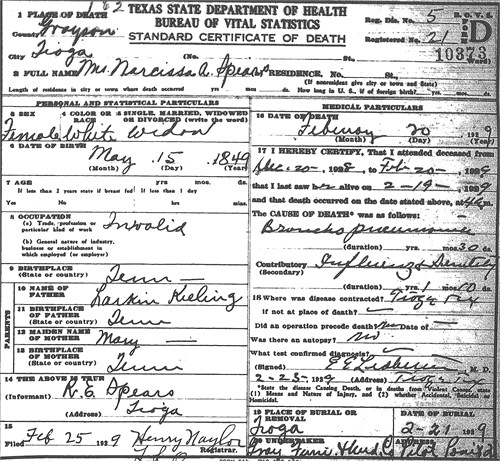 1 PLACE OF DEATH
TEXAS STATE DEPARTMENT OF HEALTH
BUREAU OF VITAL STATISTICS
STANDARD CERTIFICATE OF DEATH
Reg. Dis. No. 5
Registered No. 21
10373
D
County Grayson
City Tioga (No. St.)
2 FULL NAME Mrs. Narcissa A. Spears RESIDENCE, No. St.
(If nonresident give city or town and State)
Length of residence in city or town where death occurred yrs. mos. ds. How long in U. S., if of foreign birth? yrs. mos. ds.
PERSONAL AND STATISTICAL PARTICULARS
3 SEX 4 COLOR OR RACE 5 SINGLE, MARRIED, WIDOWED OR DIVORCED (write the word)
Female White Widow
6 DATE OF BIRTH
May 15 1849
(Month) (Day) (Year)
7 AGE
If less than 2 years state if breast fed If less than 1 day
Yes No hours min.
8 OCCUPATION
(a) Trade, profession or particular kind of work Invalid
(b) General nature of industry, business or establishment in which employed (or employer)
9 BIRTHPLACE
(State or country) Tenn
PARENTS
10 NAME OF FATHER Larkin Keeling
11 BIRTHPLACE OF FATHER
(State or country) Tenn
12 MAIDEN NAME OF MOTHER Mary
13 BIRTHPLACE OF MOTHER
(State or country) Tenn
14 THE ABOVE IS TRUE
(Informant) R. E. Spears
(Address) Tioga
15
Filed Feb 25 1929 Henry Naylor
Registrar.
MEDICAL PARTICULARS
16 DATE OF DEATH
February 20 1929
(Month) (Day) (Year)
17 I HERECY CERTIFY, That I attended deceased
from Dec. 20 1928 to Feb 20 1929
that I last saw her alive on 2-19 1929
and that death occurred on the date stated above, at
The CAUSE OF DEATH* was as follows:
Broncho pneumonia
(duration) yrs. mos. 30 ds.
Contributory Influenza
(Secondary)
(duration) yrs. mos. ds.
18 Where was disease contracted? Tioga Tex
if not at place of death?
Did an operation precede death? No Date of
Was there an autopsy? No
What test confirmed diagnosis?
(Signed) M. D.
2-23-1929 (Address) Tioga
* State the disease Causing Death, or in deaths from Violent Causes, state (1) Means and Nature of Injury, and (2) whether Accidental, Suicidal or Homicidal.
19 PLACE OF BURIAL OR REMOVAL DATE OF BURIAL
Tioga 2-21 1929
20 UNDERTAKER ADDRESS
Pilot Point